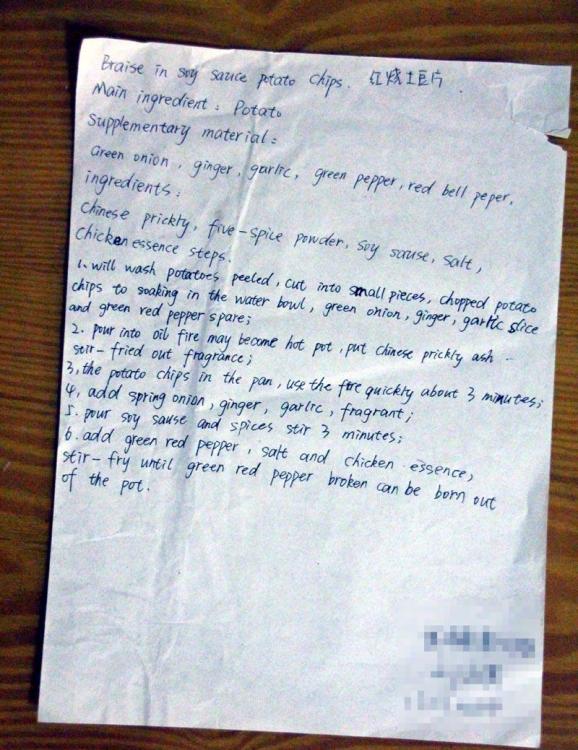 Braise in soy sauce potato chips. 红烧土豆片
Main ingredient: Potato
Supplementary material:
Green onion, ginger, garlic, green pepper, red bell peper.
ingredients:
Chinese prickly, five-spice powder, soy sause, salt,
Chicken essence steps.
1. will wash potatoes peeled, cut into small pieces, chopped potato
chips to soaking in the water bowl, green onion, ginger, garlic slice
and green red pepper spare;
2. pour into oil fire may become hot pot, put chinese prickly ash -
stir-fried out fragrance;
3, the potato chips in the pan, use the fire quickly about 3 minutes;
4, add spring onion, ginger, garlic, fragrant;
5. pour soy sause and spices stir 3 minutes;
6. add green red pepper, salt and chicken essence,
stir-fry until green red pepper broken can be born out
of the pot.